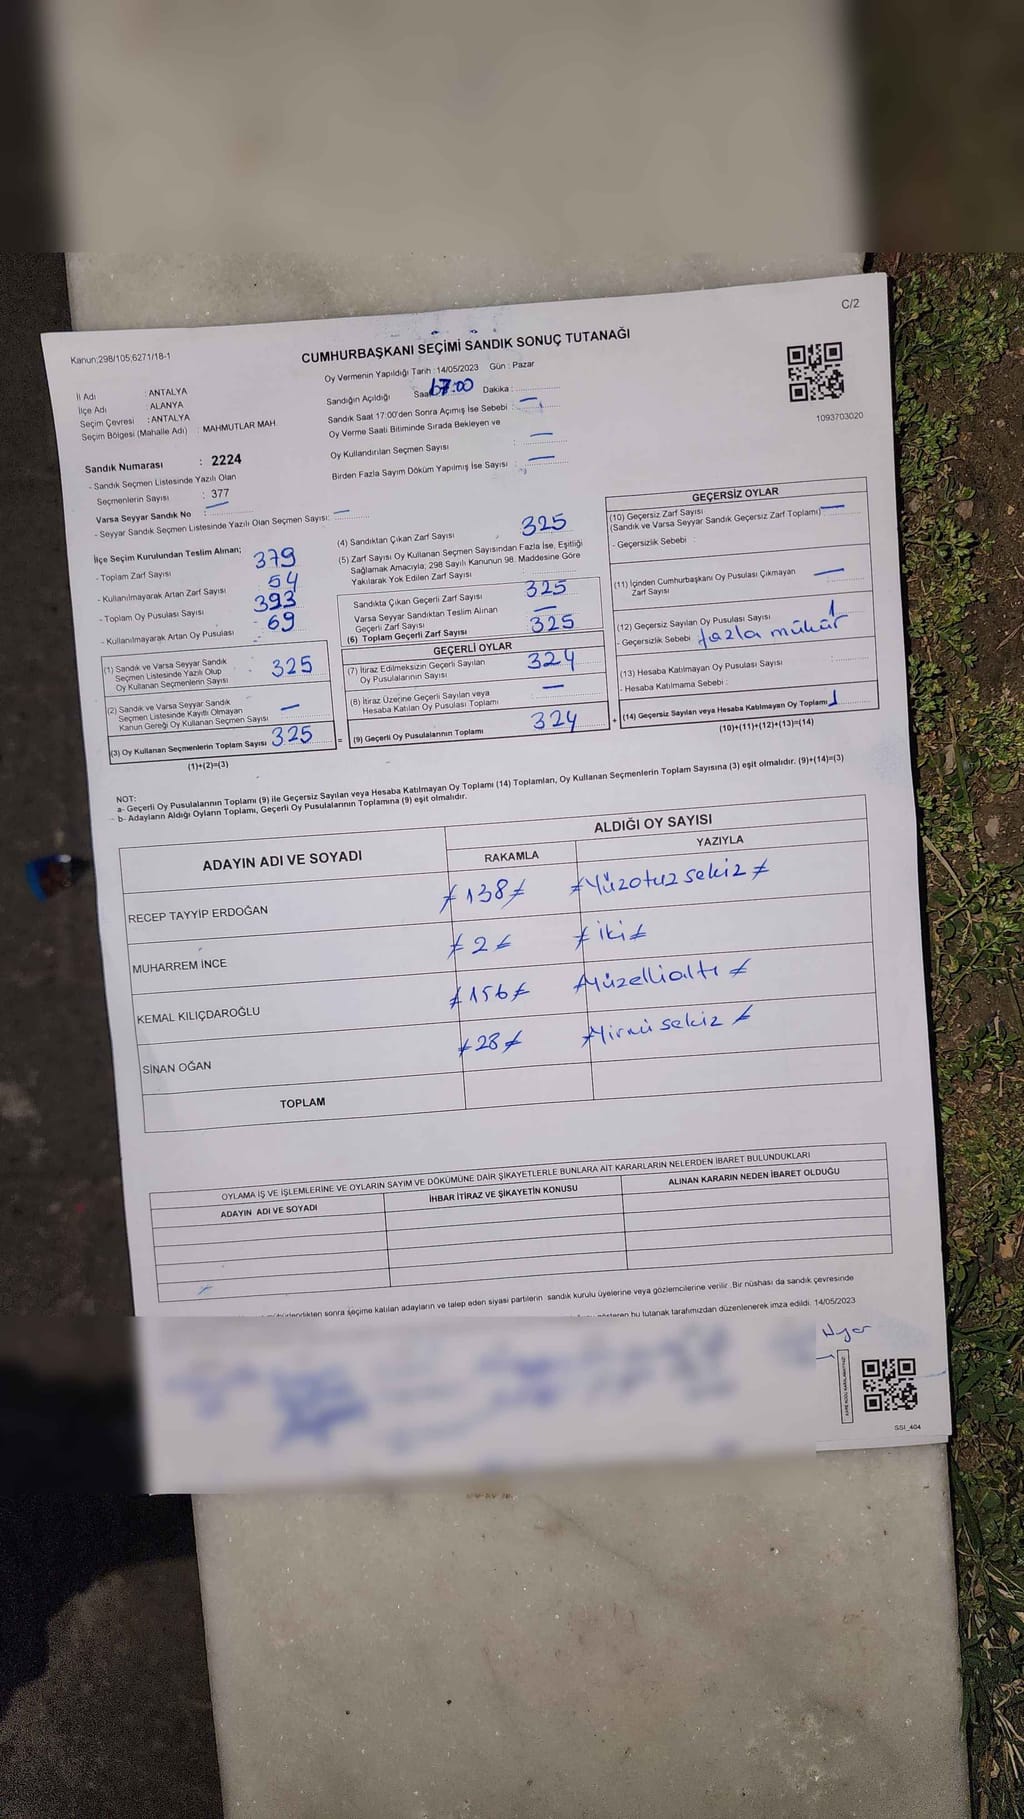 C/2
Kanun;298/105;6271/18-1
CUMHURBAŞKANI SEÇİMİ SANDIK SONUÇ TUTANAĞI
Oy Vermenin Yapıldığı Tarih : 14/05/2023 Gün : Pazar
İl Adı : ANTALYA
İlçe Adı : ALANYA
Seçim Çevresi : ANTALYA
Seçim Bölgesi (Mahalle Adı) : MAHMUTLAR MAH.
Sandık Numarası : 2224
- Sandık Seçmen Listesinde Yazılı Olan
Seçmenlerin Sayısı : 377
Varsa Seyyar Sandık No : —
- Seyyar Sandık Seçmen Listesinde Yazılı Olan Seçmen Sayısı: —
Sandığın Açıldığı Saat 17:00 Dakika :
Sandık Saat 17:00'den Sonra Açımış İse Sebebi : —
Oy Verme Saati Bitiminde Sırada Bekleyen ve
Oy Kullandırılan Seçmen Sayısı : —
Birden Fazla Sayım Döküm Yapılmış İse Sayısı : —
1093703020
İlçe Seçim Kurulundan Teslim Alınan;
- Toplam Zarf Sayısı 379
- Kullanılmayarak Artan Zarf Sayısı 54
- Toplam Oy Pusulası Sayısı 393
- Kullanılmayarak Artan Oy Pusulası 69
(1) Sandık ve Varsa Seyyar Sandık
Seçmen Listesinde Yazılı Olup
Oy Kullanan Seçmenlerin Sayısı : 325
(2) Sandık ve Varsa Seyyar Sandık
Seçmen Listesinde Kayıtlı Olmayan
Kanun Gereği Oy Kullanan Seçmen Sayısı —
(3) Oy Kullanan Seçmenlerin Toplam Sayısı 325
(1)+(2)=(3)
(4) Sandıktan Çıkan Zarf Sayısı 325
(5) Zarf Sayısı Oy Kullanan Seçmen Sayısından Fazla İse, Eşitliği
Sağlamak Amacıyla; 298 Sayılı Kanunun 98. Maddesine Göre
Yakılarak Yok Edilen Zarf Sayısı
Sandıkta Çıkan Geçerli Zarf Sayısı 325
Varsa Seyyar Sandıktan Teslim Alınan
Geçerli Zarf Sayısı —
(6) Toplam Geçerli Zarf Sayısı 325
GEÇERLİ OYLAR
(7) İtiraz Edilmeksizin Geçerli Sayılan
Oy Pusulalarının Sayısı 324
(8) İtiraz Üzerine Geçerli Sayılan veya
Hesaba Katılan Oy Pusulası Toplamı —
= (9) Geçerli Oy Pusulalarının Toplamı 324
GEÇERSİZ OYLAR
(10) Geçersiz Zarf Sayısı
(Sandık ve Varsa Seyyar Sandık Geçersiz Zarf Toplamı) —
- Geçersizlik Sebebi :
(11) İçinden Cumhurbaşkanı Oy Pusulası Çıkmayan
Zarf Sayısı —
(12) Geçersiz Sayılan Oy Pusulası Sayısı 1
- Geçersizlik Sebebi fazla mühür
(13) Hesaba Katılmayan Oy Pusulası Sayısı :
- Hesaba Katılmama Sebebi :
+ (14) Geçersiz Sayılan veya Hesaba Katılmayan Oy Toplamı 1
(10)+(11)+(12)+(13)=(14)
NOT:
a- Geçerli Oy Pusulalarının Toplamı (9) ile Geçersiz Sayılan veya Hesaba Katılmayan Oy Toplamı (14) Toplamları, Oy Kullanan Seçmenlerin Toplam Sayısına (3) eşit olmalıdır. (9)+(14)=(3)
b- Adayların Aldığı Oyların Toplamı, Geçerli Oy Pusulalarının Toplamına (9) eşit olmalıdır.
ADAYIN ADI VE SOYADI
ALDIĞI OY SAYISI
RAKAMLA YAZIYLA
RECEP TAYYİP ERDOĞAN ≠138≠ ≠Yüzotuz sekiz≠
MUHARREM İNCE ≠2≠ ≠iki≠
KEMAL KILIÇDAROĞLU ≠156≠ ≠Yüzellialtı≠
SİNAN OĞAN ≠28≠ ≠Yirmi sekiz≠
TOPLAM
OYLAMA İŞ VE İŞLEMLERİNE VE OYLARIN SAYIM VE DÖKÜMÜNE DAİR ŞİKAYETLERLE BUNLARA AİT KARARLARIN NELERDEN İBARET BULUNDUKLARI
ADAYIN ADI VE SOYADI İHBAR İTİRAZ VE ŞİKAYETİN KONUSU ALINAN KARARIN NEDEN İBARET OLDUĞU
sonra seçime katılan adayların ve talep eden siyasi partilerin sandık kurulu üyelerine veya gözlemcilerine verilir. Bir nüshası da sandık çevresinde
bu tutanak tarafımızdan düzenlenerek imza edildi. 14/05/2023
SSI_404